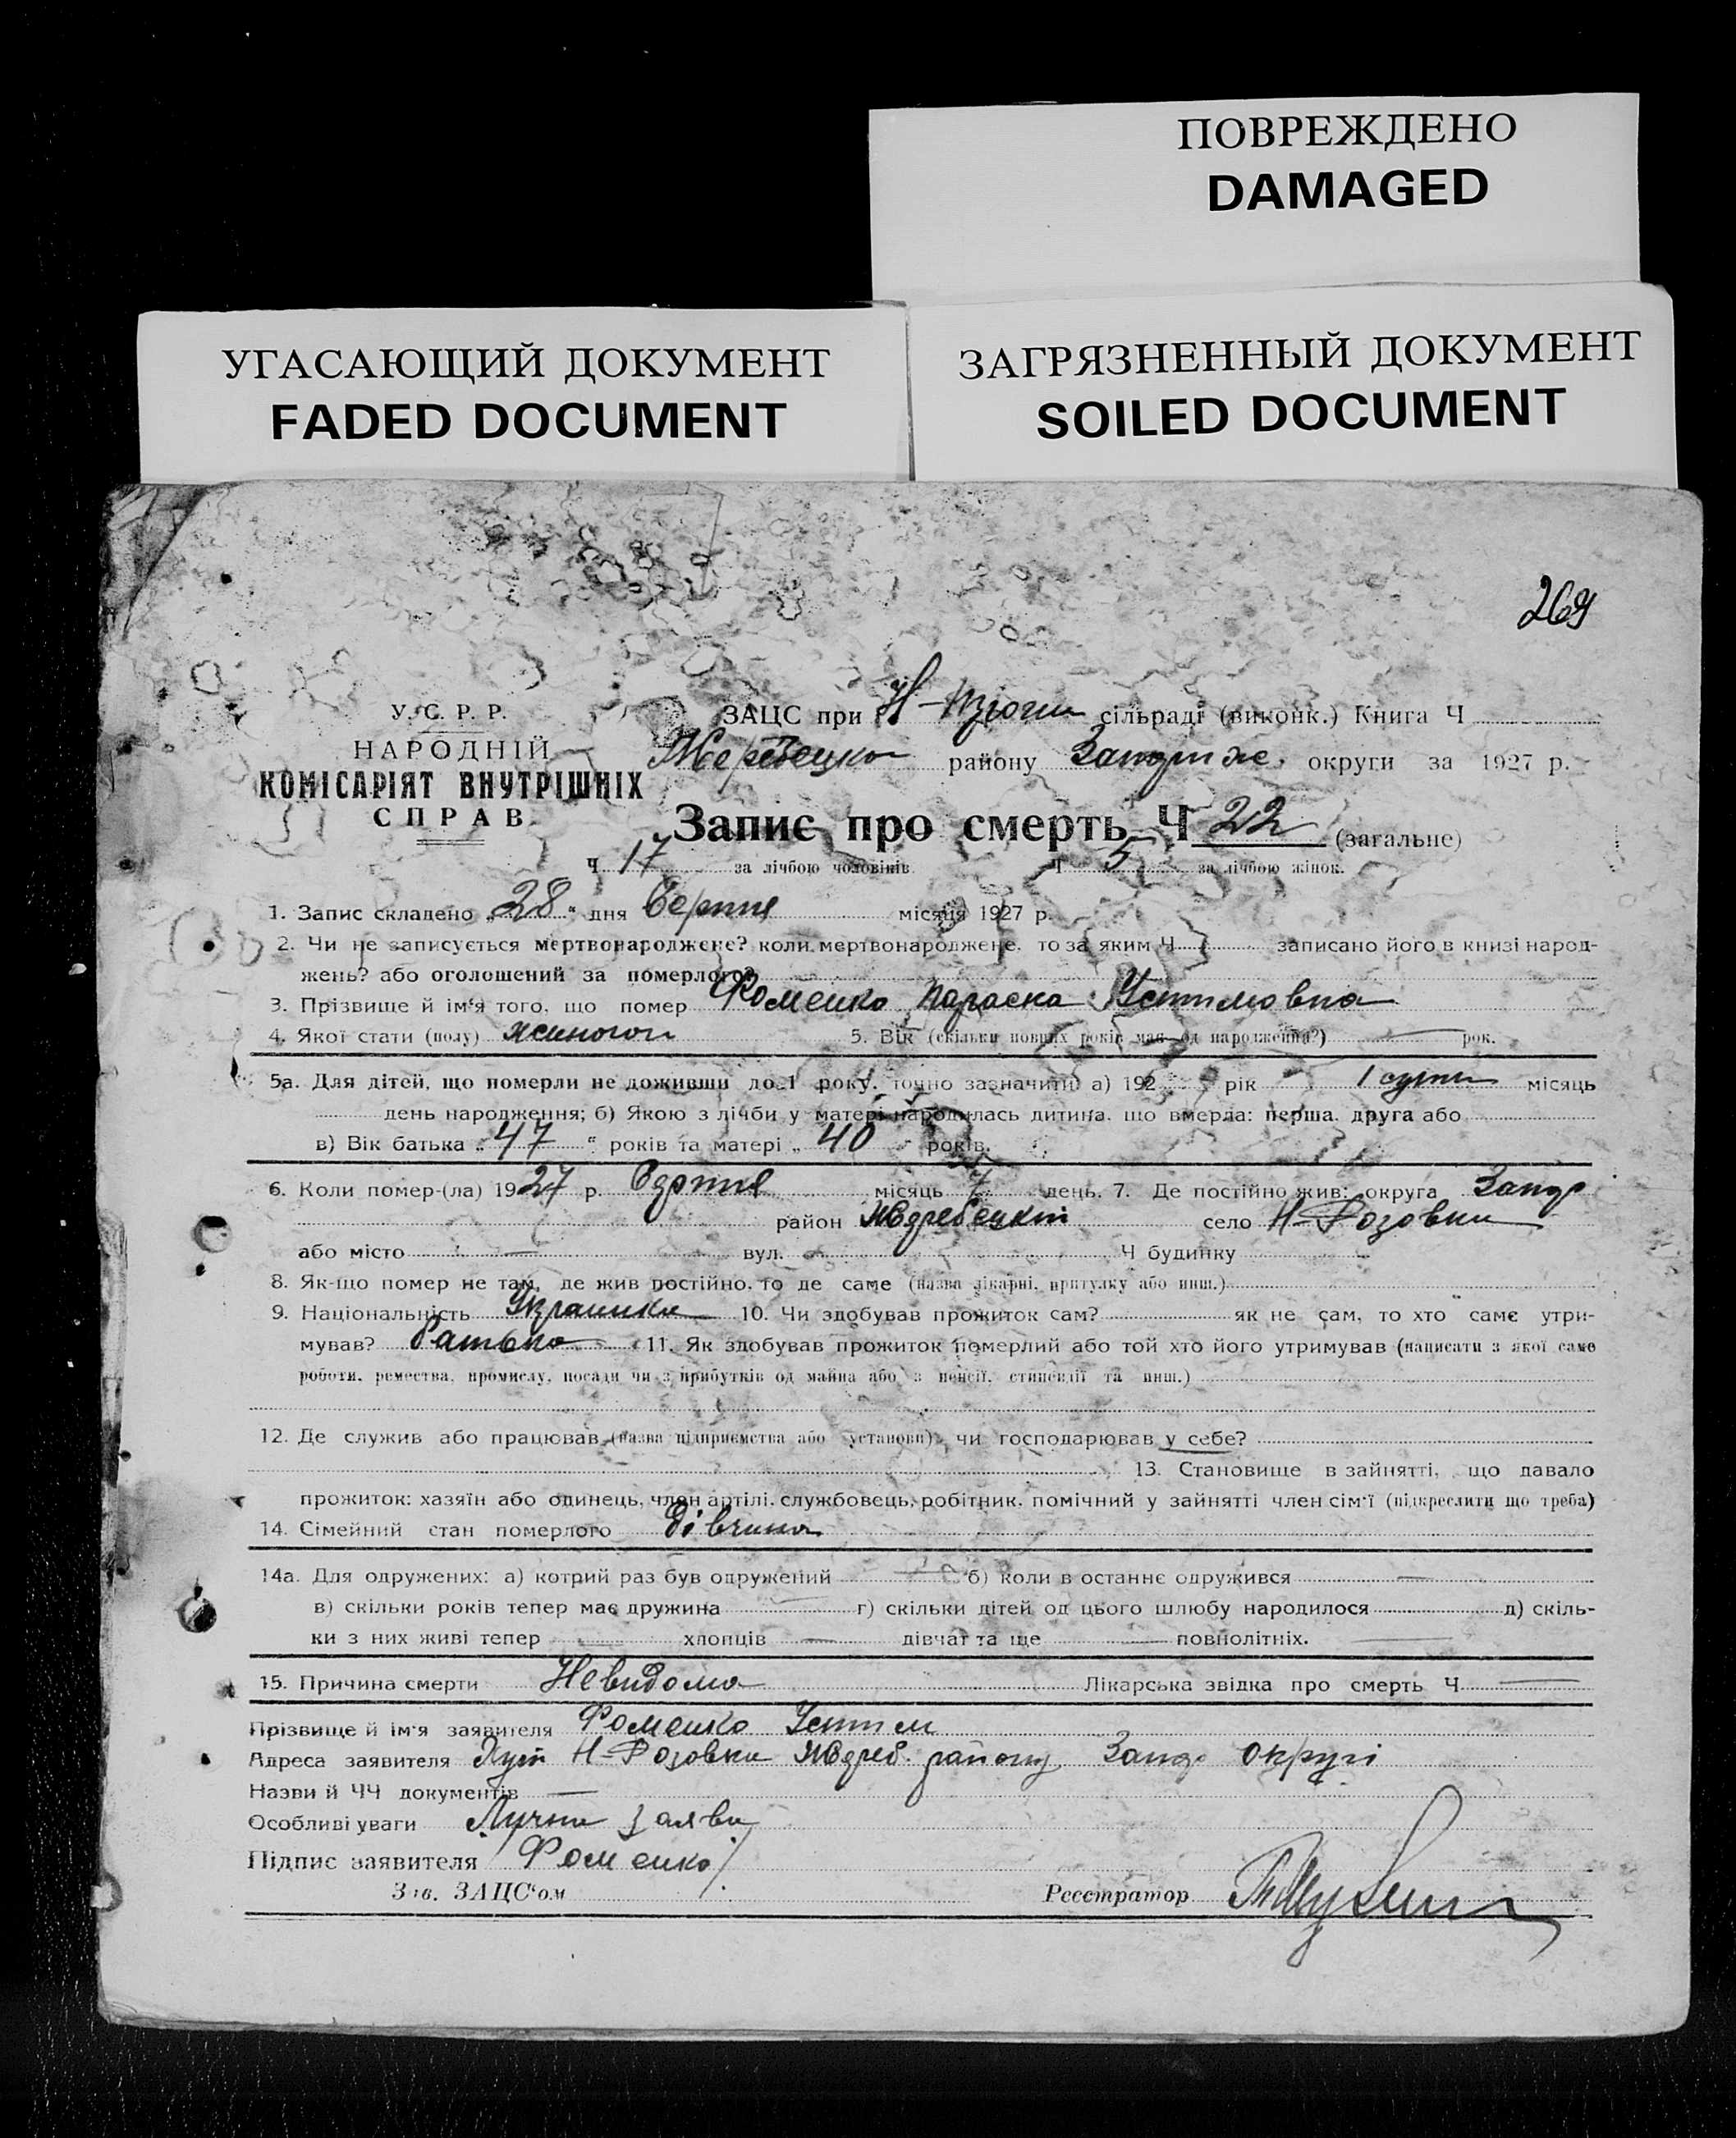 ПОВРЕЖДЕНО
DAMAGED
УГАСАЮЩИЙ ДОКУМЕНТ
FADED DOCUMENT
ЗАГРЯЗНЕННЫЙ ДОКУМЕНТ
SOILED DOCUMENT
269
У. С. Р. Р.
НАРОДНІЙ
КОМІСАРІЯТ ВНУТРІШНІХ
СПРАВ
ЗАЦС при Н- сільраді (виконк.) Книга Ч
району округи за 1927 р.
Запис про смерть Ч 22 (загальне)
Ч 17 за лічбою чоловіків Ч 5 за лічбою жінок.
1. Запис складено „28“ дня Серпня місяця 1927 р.
2. Чи не записується мертвонароджене? коли мертвонароджене, то за яким Ч записано його в книзі народ-
жень? або оголошений за померлого?
3. Прізвище й ім'я того, що помер Фоменко Параска Устимовна
4. Якої статі (полу) жиночої 5. Вік (скільки повних років мав од народження?) — рок.
5а. Для дітей, що померли не доживши до 1 року, точно зазначити а) 192 рік 1 сутки місяць
день народження; б) Якою з лічби у матері народилась дитина, що вмерла: перша, друга або
в) Вік батька „47“ років та матері „40“ років.
6. Коли помер-(ла) 1927 р. Серпня місяць 7 день. 7. Де постійно жив: округа Запор
район Жеребецкий село Н-Розовки
або місто — вул. — Ч будинку
8. Як-що помер не там, де жив постійно, то де саме (назва лікарні, притулку або инш.)
9. Національність Украинка 10. Чи здобував прожиток сам? як не сам, то хто саме утри-
мував? Батько 11. Як здобував прожиток померлий або той хто його утримував (написати з якої саме
роботи, ремества, промислу, посади чи з прибутків од майна або з пенсії, стипендії та инш.)
12. Де служив або працював (назва підприємства або установи), чи господарював у себе?
13. Становище в зайнятті, що давало
прожиток: хазяїн або одинець, член артілі, службовець, робітник, помічний у зайнятті член сім'ї (підкреслити що треба)
14. Сімейний стан померлого дівчина
14а. Для одружених: а) котрий раз був одружений — б) коли в останнє одружився —
в) скільки років тепер має дружина — г) скільки дітей од цього шлюбу народилося д) скіль-
ки з них живі тепер — хлопців — дівчат та ще — повнолітніх. —
15. Причина смерти Невидома Лікарська звідка про смерть Ч —
Прізвище й ім'я заявителя Фоменко Устим
Адреса заявителя Хут Н-Розовки Жереб. району Запор округі
Назви й ЧЧ документів —
Особливі уваги заяви
Підпис заявителя /Фоменко/
Зав. ЗАЦС'ом Реєстратор